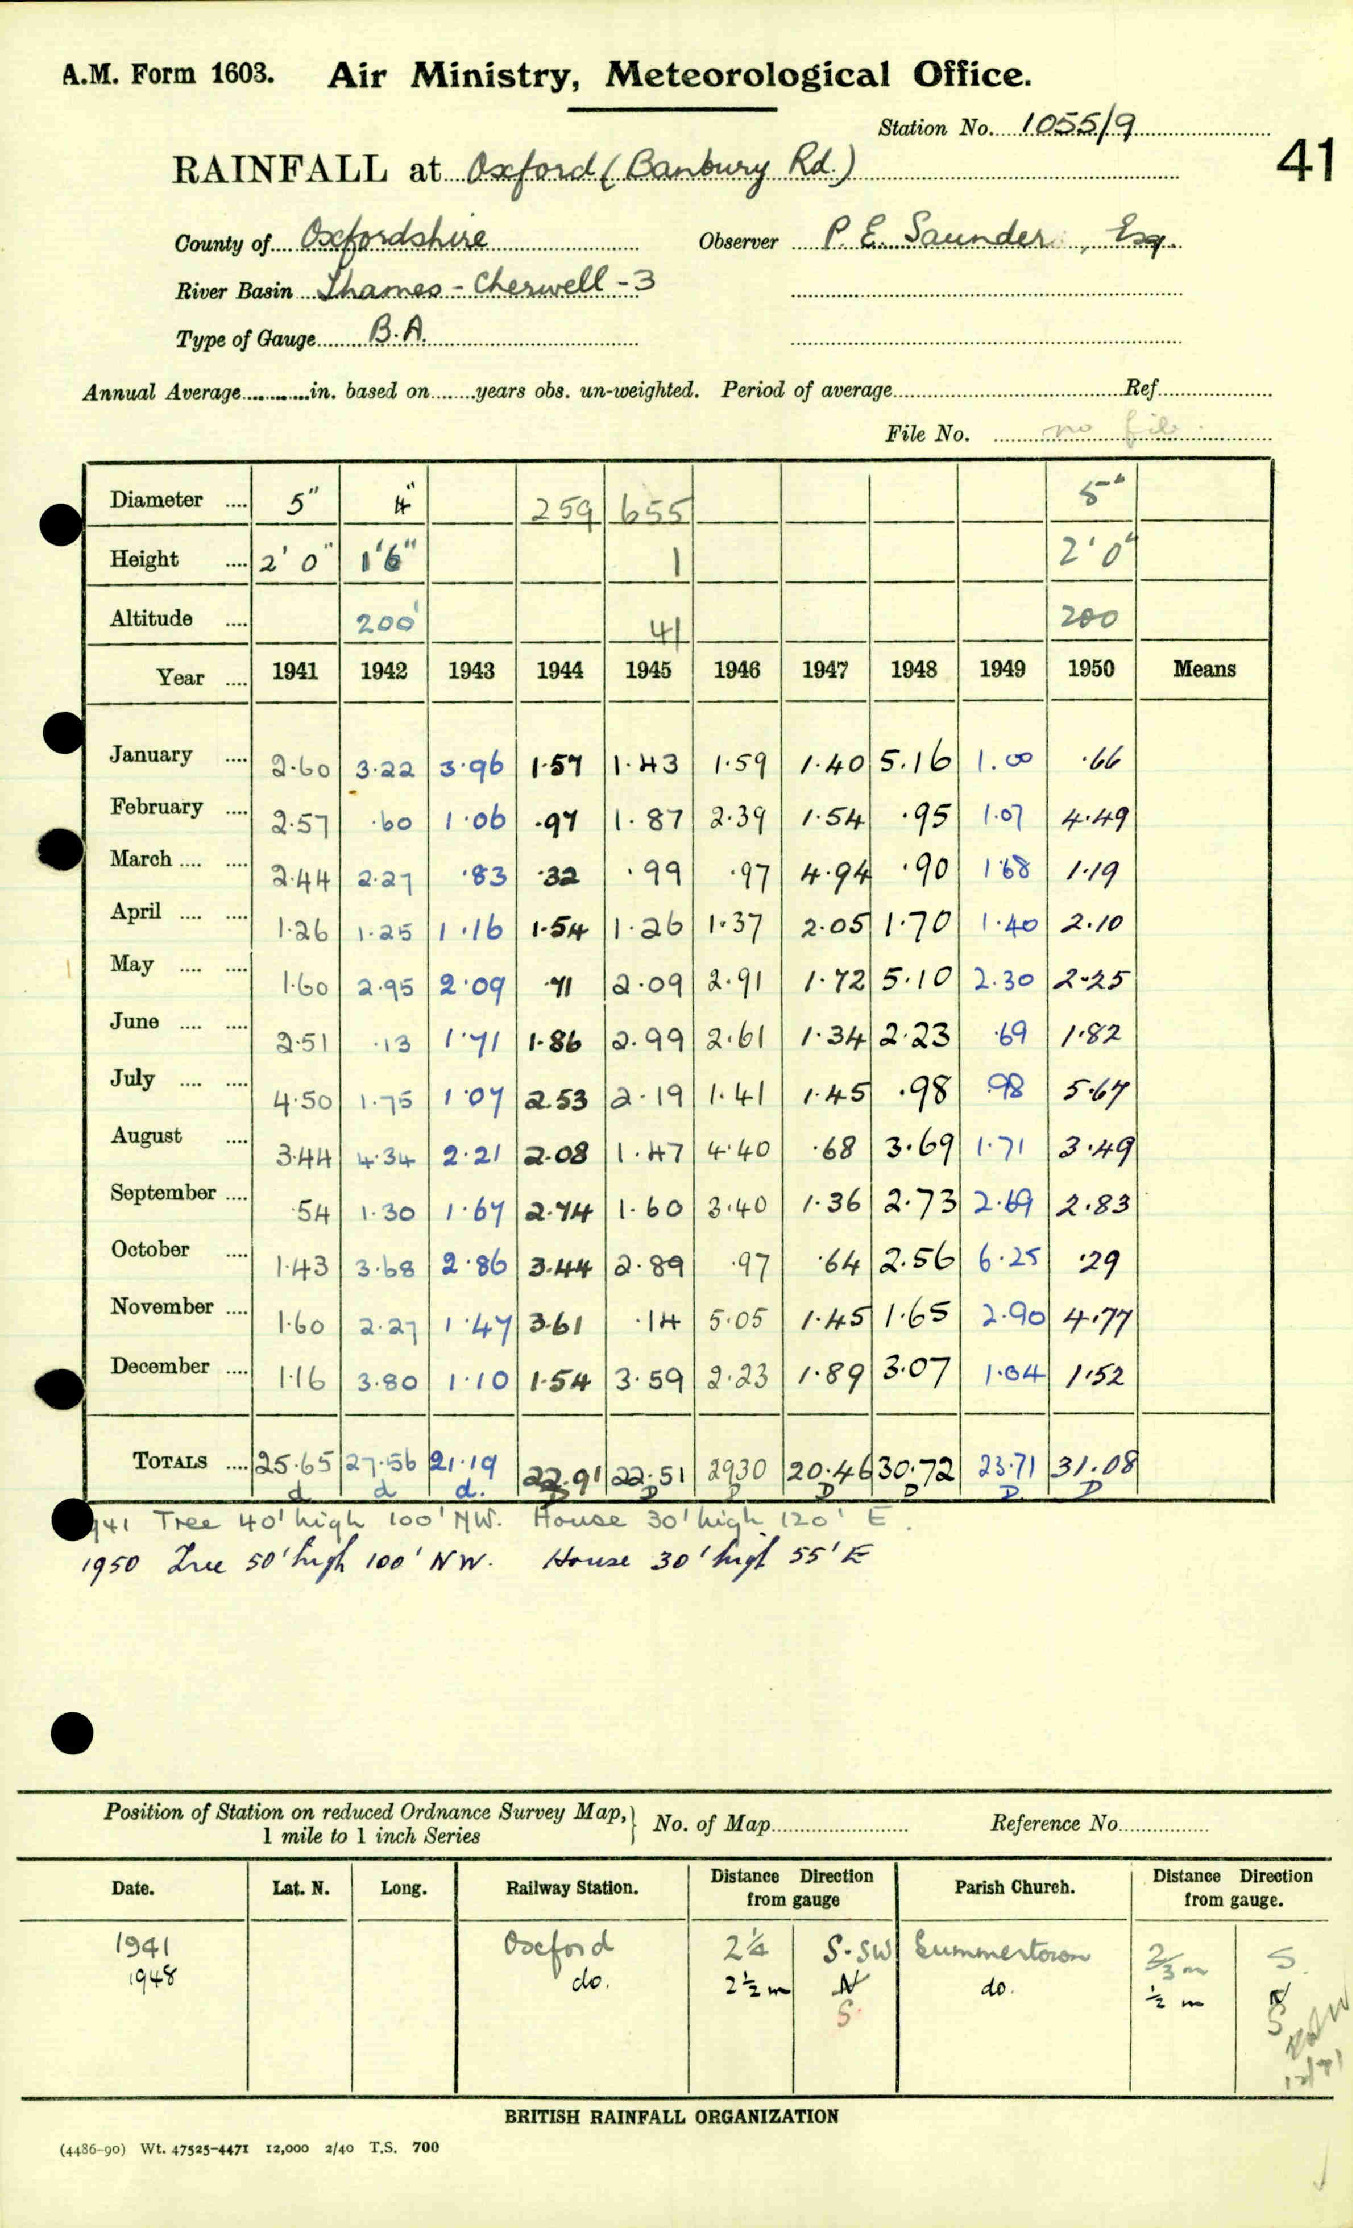 A.M. Form 1603. Air Ministry, Meteorological Office.
Station No. 1055/9
41
RAINFALL at Oxford (Banbury Rd.)
County of Oxfordshire Observer P. E. Saunder , Esq.
River Basin Thames - Cherwell - 3
Type of Gauge B.A.
Annual Average in. based on years obs. un-weighted. Period of average Ref
File No. no file
Diameter 5" 4" 259 655 5"
Height 2' 0" 1'6" 1 2' 0"
Altitude 200' 41 200
Year 1941 1942 1943 1944 1945 1946 1947 1948 1949 1950 Means
January 2.60 3.22 3.96 1.57 1.43 1.59 1.40 5.16 1.00 .66
February 2.57 .60 1.06 .97 1.87 2.39 1.54 .95 1.07 4.49
March 2.44 2.27 .83 .32 .99 .97 4.94 .90 1.68 1.19
April 1.26 1.25 1.16 1.54 1.26 1.37 2.05 1.70 1.40 2.10
May 1.60 2.95 2.09 .71 2.09 2.91 1.72 5.10 2.30 2.25
June 2.51 .13 1.71 1.86 2.99 2.61 1.34 2.23 .69 1.82
July 4.50 1.75 1.07 2.53 2.19 1.41 1.45 .98 .98 5.67
August 3.44 4.34 2.21 2.08 1.47 4.40 .68 3.69 1.71 3.49
September .54 1.30 1.67 2.74 1.60 3.40 1.36 2.73 2.69 2.83
October 1.43 3.68 2.86 3.44 2.89 .97 .64 2.56 6.25 .29
November 1.60 2.27 1.47 3.61 .14 5.05 1.45 1.65 2.90 4.77
December 1.16 3.80 1.10 1.54 3.59 2.23 1.89 3.07 1.04 1.52
TOTALS 25.65 27.56 21.19 22.91 22.51 29.30 20.46 30.72 23.71 31.08
d d d. D D D D D D D
941 Tree 40' high 100' NW. House 30' high 120' E.
1950 Tree 50' high 100' NW. House 30' high 55' E
Position of Station on reduced Ordnance Survey Map, No. of Map Reference No.
1 mile to 1 inch Series
Date. Lat. N. Long. Railway Station. Distance Direction from gauge Parish Church. Distance Direction from gauge.
1941 Oxford 2¼ S-SW Summertown 2/3 m S.
1948 do. 2½ m N do. ½ m N
S S
12/71
BRITISH RAINFALL ORGANIZATION
(4486-90) Wt. 47525-4471 12,000 2/40 T.S. 700